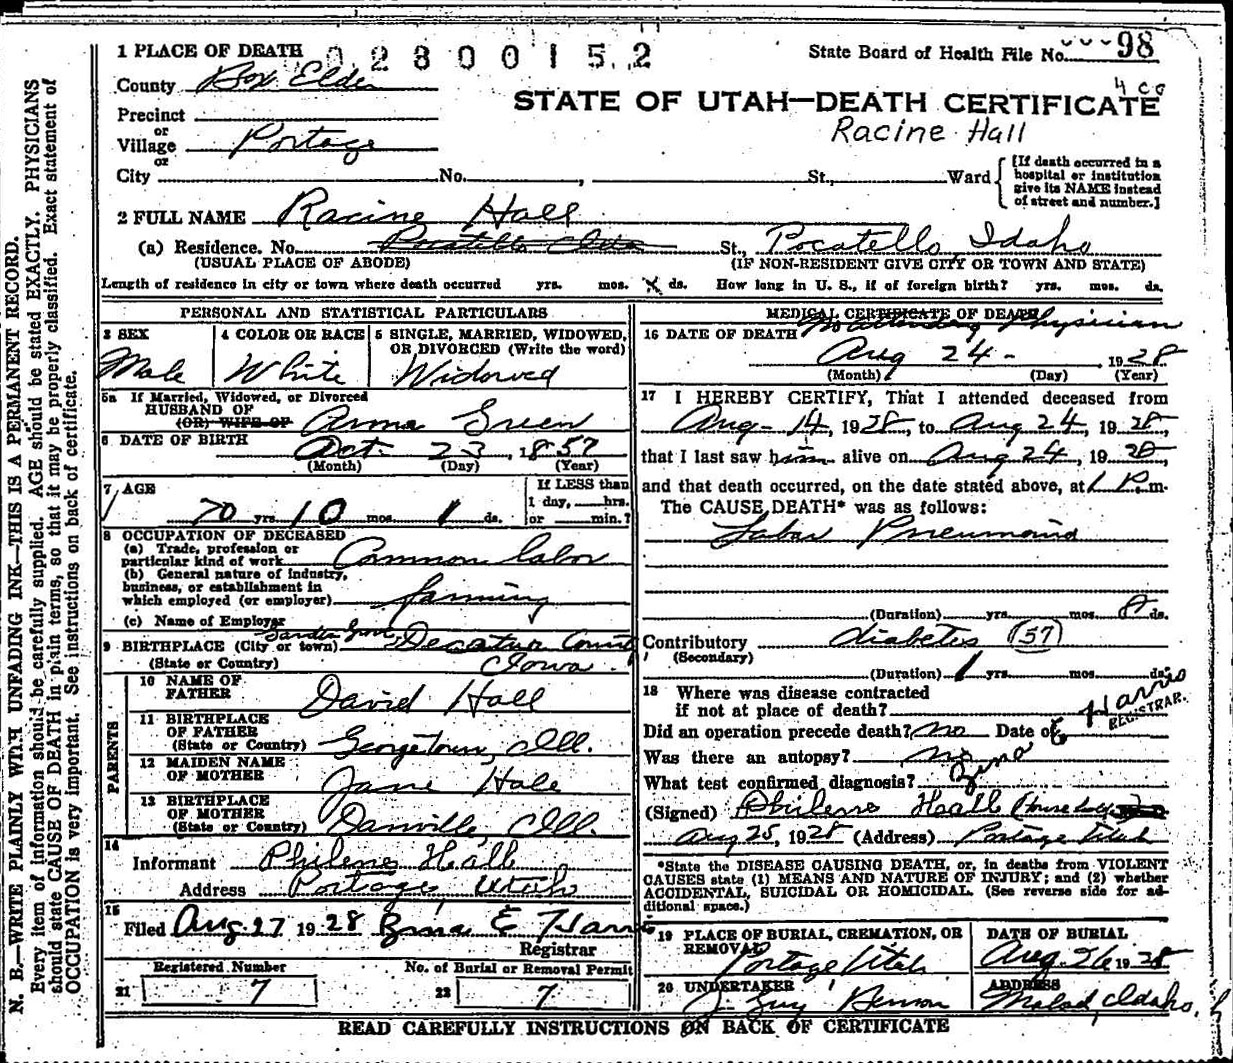 1 PLACE OF DEATH 02800152 State Board of Health File No. 98
County Box Elder 4 co
STATE OF UTAH—DEATH CERTIFICATE
Precinct
or
Village Portage Racine Hall
or
City No. , St., Ward { [If death occurred in a hospital or institution give its NAME instead of street and number.]
2 FULL NAME Racine Hall
(a) Residence. No. Pocatello Idaho St., Pocatello, Idaho
(USUAL PLACE OF ABODE) (IF NON-RESIDENT GIVE CITY OR TOWN AND STATE)
Length of residence in city or town where death occurred yrs. mos. ds. How long in U. S., if of foreign birth? yrs. mos. ds.
PERSONAL AND STATISTICAL PARTICULARS
3 SEX 4 COLOR OR RACE 5 SINGLE, MARRIED, WIDOWED, OR DIVORCED (Write the word)
Male White Widowed
5a If Married, Widowed, or Divorced
HUSBAND OF
(OR) WIFE OF Anna Green
6 DATE OF BIRTH Oct. 23, 1857
(Month) (Day) (Year)
7 AGE If LESS than
1 day, hrs.
70 yrs. 10 mos. 1 ds. or min.?
8 OCCUPATION OF DECEASED
(a) Trade, profession or
particular kind of work Common labor
(b) General nature of industry,
business, or establishment in
which employed (or employer) farming
(c) Name of Employer
9 BIRTHPLACE (City or town) Decatur County
(State or Country) Iowa
PARENTS
10 NAME OF FATHER David Hall
11 BIRTHPLACE OF FATHER (State or Country) Georgetown, Ill.
12 MAIDEN NAME OF MOTHER Jane Hale
13 BIRTHPLACE OF MOTHER (State or Country) Danville, Ill.
14
Informant Philene Hall
Address Portage, Utah
15
Filed Aug. 27 1928 Zina E Harris
Registrar
Registered Number No. of Burial or Removal Permit
21 7 22 7
MEDICAL CERTIFICATE OF DEATH
No attending Physician
16 DATE OF DEATH
Aug 24 - 1928
(Month) (Day) (Year)
17 I HEREBY CERTIFY, That I attended deceased from
Aug - 14, 1928, to Aug 24, 1928,
that I last saw him alive on Aug 24, 1928,
and that death occurred, on the date stated above, at 1 P.m.
The CAUSE DEATH* was as follows:
Lobar Pneumonia
(Duration) yrs. mos. 8 ds.
Contributory diabetes (57)
(Secondary)
(Duration) 1 yrs. mos. ds.
18 Where was disease contracted
if not at place of death?
Did an operation precede death? no Date of
Was there an autopsy? no
What test confirmed diagnosis?
Zina E Harris
REGISTRAR.
(Signed) Philene Hall
Aug 25, 1928 (Address) Portage Utah
*State the DISEASE CAUSING DEATH, or, in deaths from VIOLENT
CAUSES state (1) MEANS AND NATURE OF INJURY; and (2) whether
ACCIDENTAL, SUICIDAL OR HOMICIDAL. (See reverse side for additional space.)
19 PLACE OF BURIAL, CREMATION, OR REMOVAL DATE OF BURIAL
Portage Utah Aug. 26 1928
20 UNDERTAKER ADDRESS
J. Guy Benson Malad, Idaho.
READ CAREFULLY INSTRUCTIONS ON BACK OF CERTIFICATE
N. B.—WRITE PLAINLY WITH UNFADING INK—THIS IS A PERMANENT RECORD.
Every item of information should be carefully supplied. AGE should be stated EXACTLY. PHYSICIANS
should state CAUSE OF DEATH in plain terms, so that it may be properly classified. Exact statement of
OCCUPATION is very important. See instructions on back of certificate.